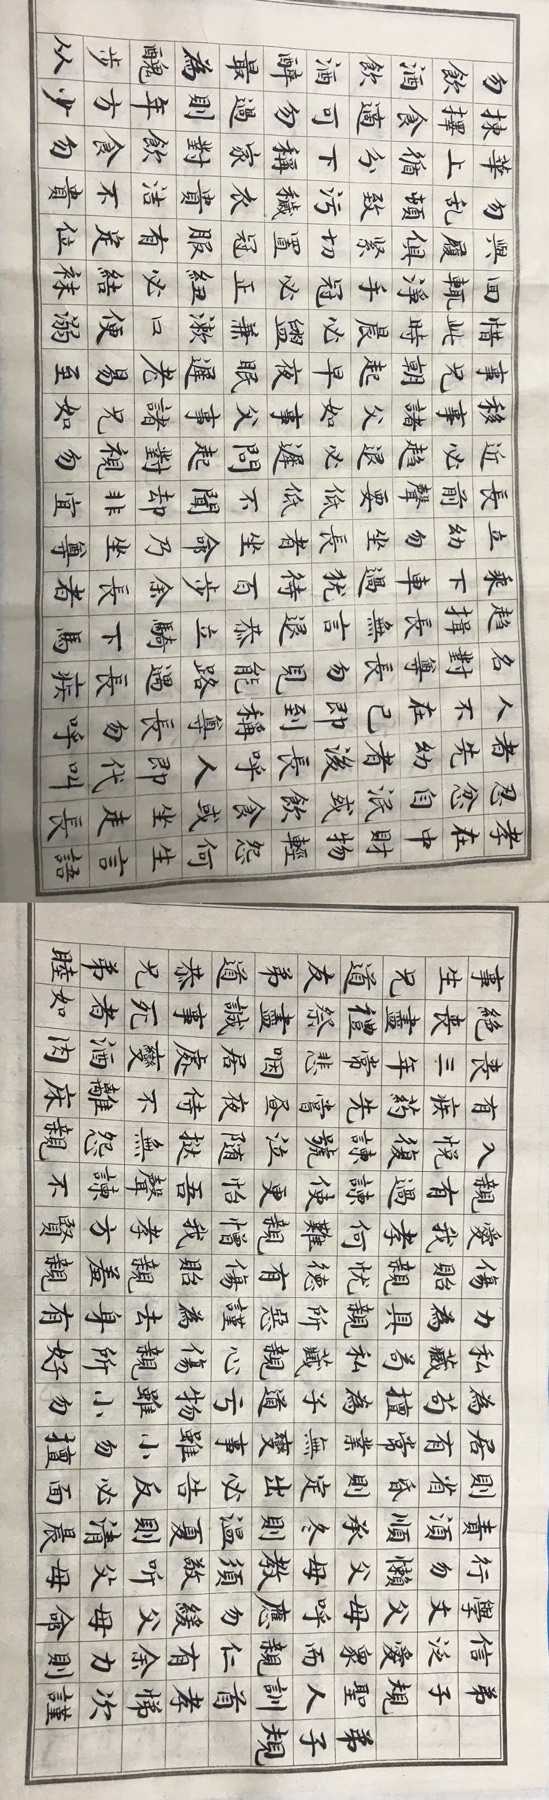 弟子規
弟子規聖人訓首孝悌次謹
信泛愛眾而親仁有余力則
學文父母呼應勿緩父母命
行勿懶父母教須敬听父母
責須順承冬則溫夏則清晨
則省昏則定出必告反必面
居有常業無變事雖小勿擅
為茍擅為子道亏物雖小勿
私藏茍私藏親心傷親所好
力為具親所惡謹為去身有
傷貽親憂德有傷貽親羞親
愛我孝何難親憎我孝方賢
親有過諫使更怡吾聲諫不
入悅復諫號泣隨撻無怨親
有疾葯先嘗昼夜侍不離床
喪三年常悲咽居處變酒肉
絕喪盡禮祭盡誠事死者如
事生兄道友弟道恭兄弟睦
孝在中財物輕怨何生言語
忍忿自泯或飲食或坐走長
者先幼者後長呼人即代叫
人不在己即到稱尊長勿呼
名對尊長勿見能路遇長疾
趨揖長無言退恭立騎下馬
乘下車過猶待百步余長者
立幼勿坐長者坐命乃坐尊
長前聲要低低不聞却非宜
近必趨退必遲問起對視勿
移事諸父如事父事諸兄如
事兄朝起早夜眠遲老易至
惜此時晨必盥兼漱口便溺
回輒淨手冠必正紐必結袜
與履俱緊切置冠服有定位
勿亂頓致污穢衣貴洁不貴
華上循分下稱家對飲食勿
揀擇食適可勿過則年方少
勿飲酒飲酒醉最為醜步从